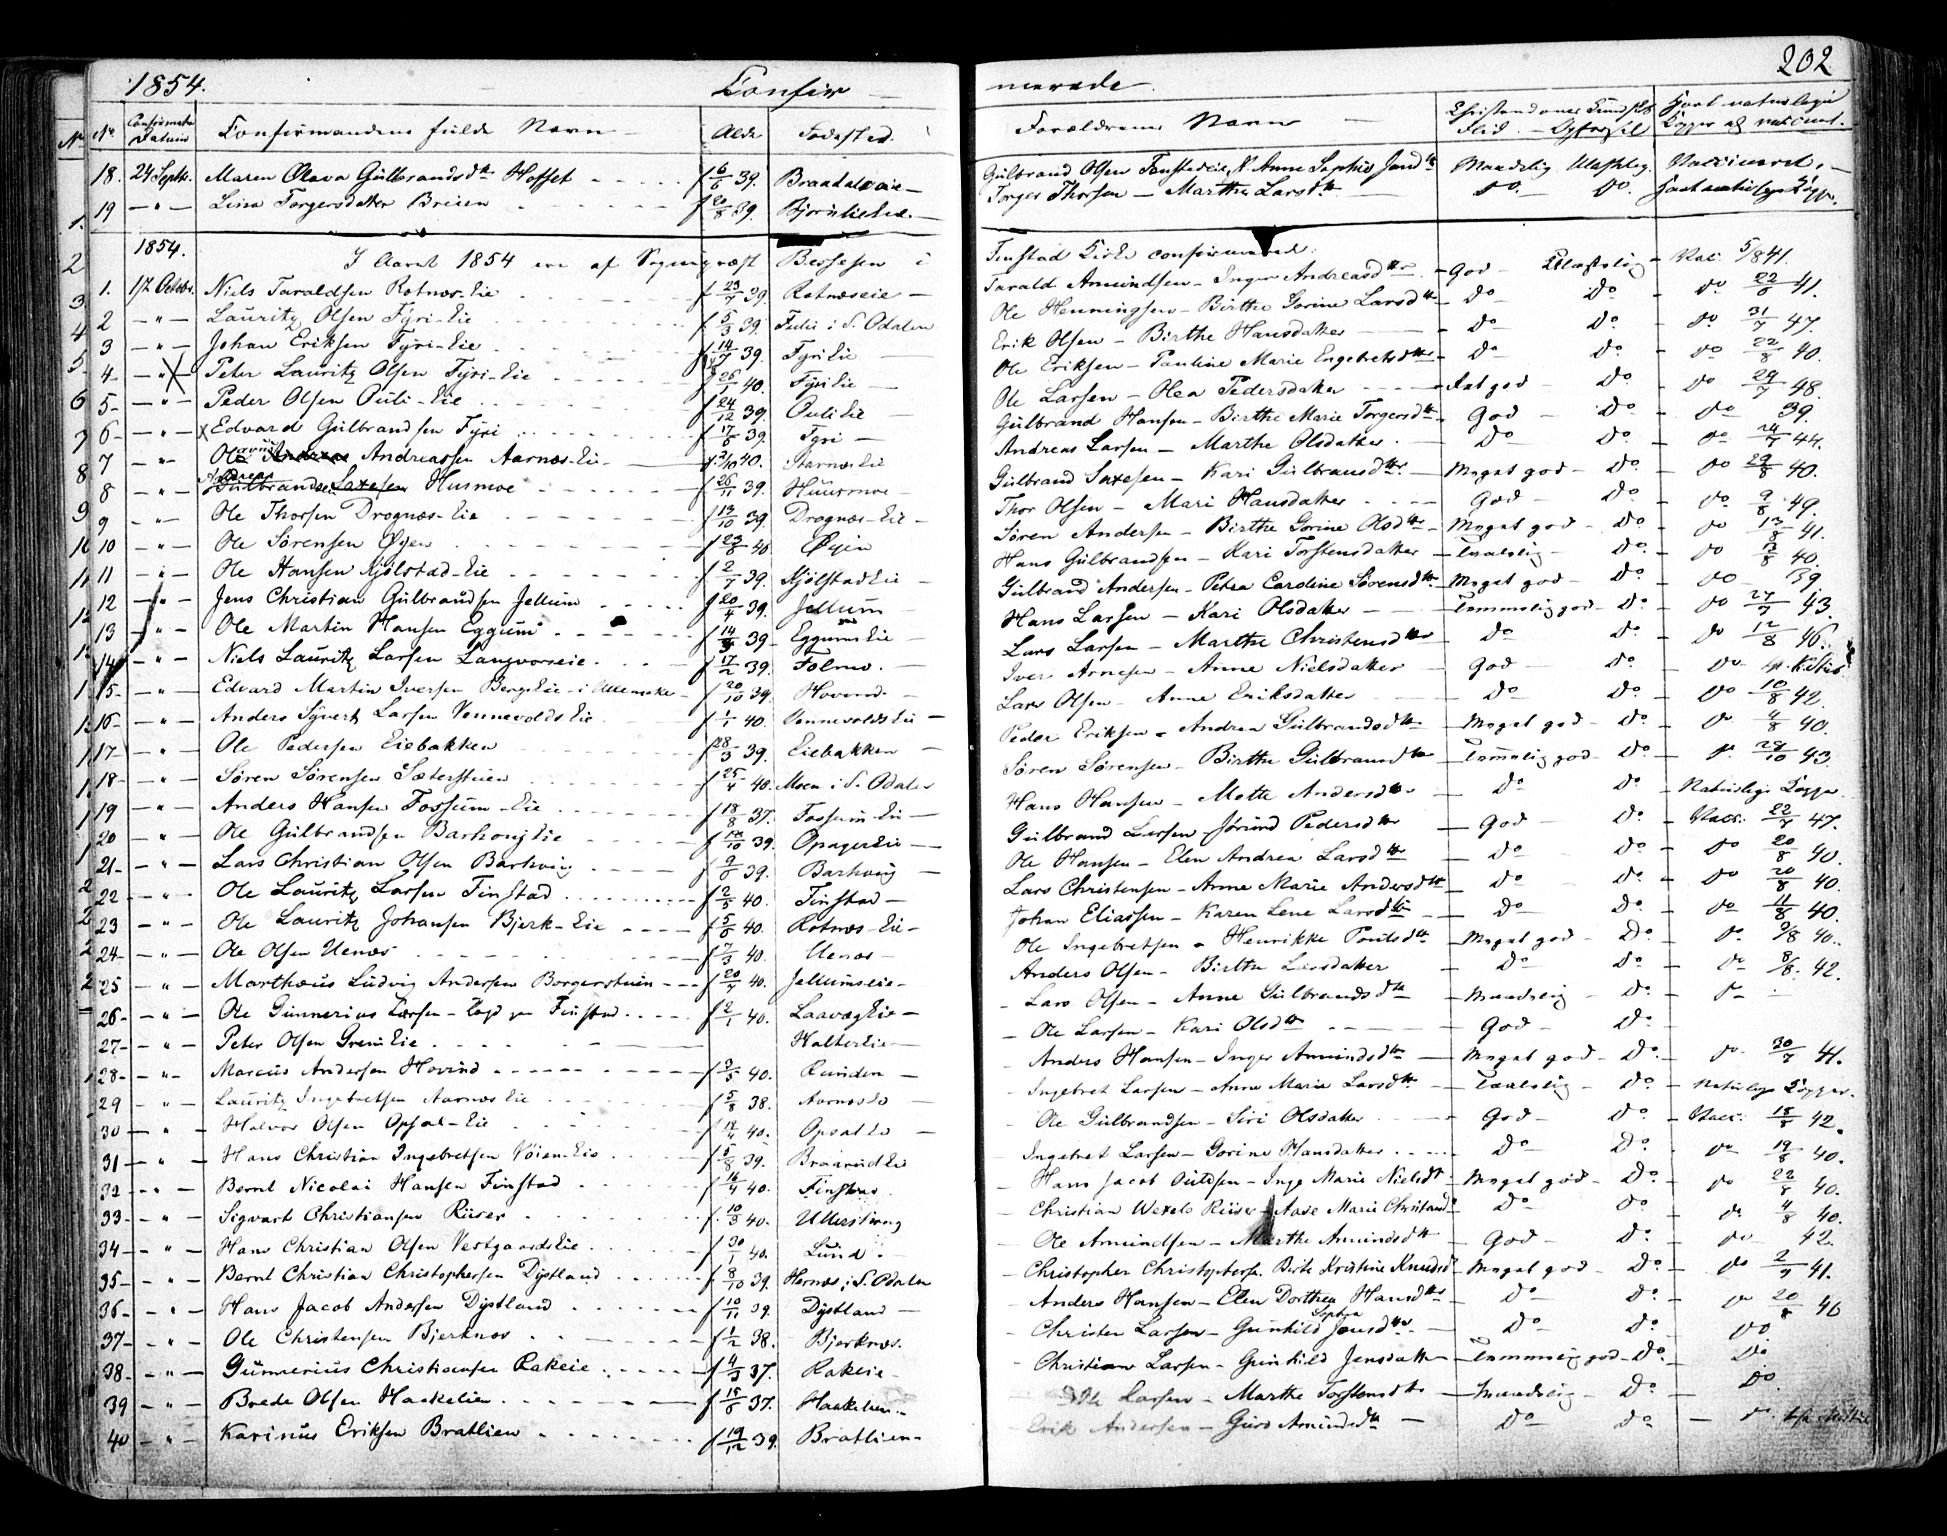 1854. Confir — merede. 202
No Confirmations Datum Confirmandens fulde Navn Alder Fødested. Forældrenes Navn Christendoms Kundskab Flid. — Opførsel
18. 24 Septbr. Maren Olava Gulbrandsdtr Hoffet f 6/6 39. Gulbrand Olsen Anne Sophie Maadelig Vaccineret.
19 — " — Lina Torgersdatter Breien f 20/8 39. Bjørnlieeie. — Torger Thorsen — Marthe Larsdtr do. do.
1854. I Aaret 1854 ere af Sognepræst Bersesen i Finstad Kirke confirmered:
1. 17 Octobr. Niels Taraldsen Rotnæs-Eie f 23/7 39. Rotnæseie — Tarald Amundsen — Inger Andreasdtr — God — Vac: 5/8 41.
2 — " — Lauritz Olsen Fyri-Eie f 5/3 39. i S. Odalen Ole Henningsen — Birthe Gorine Larsdtr — Do Do — do 22/8 41.
3 — " — Johan Eriksen Fyri-Eie f 14/7 39. Fyri Eie — Erik Olsen — Birthe Hansdatter — Do Do — do 31/7 47.
4 — " — Peter Lauritz Olsen Fyri-Eie f 26/1 40. Fyri Eie — Ole Eriksen — Pauline Marie Engebretsdtr — Do Do — do 22/8 40.
5 — " — Peder Olsen Ouli-Eie f 24/12 39. Ouli Eie — Ole Larsen — Olea Pedersdatter — god — Do do 29/7 48.
6 — " — Edvard Gulbrandsen Fyri f 17/6 39. Fyri — Gulbrand Hansen — Birthe Marie Torgersdtr God — Do — do 39.
7 — " — Ole Andreassen Aarnæs-Eie f 2/10 40. Aarnæs Eie Andreas Larsen — Marthe Olsdatter. Do Do — do 24/7 44.
8 — " — Andreas Gulbrandsen Saxesen Husmoe f 26/11 39. Huusmoe — Gulbrand Saxesen — Kari Gulbransdtr — Meget god — Do — do 29/8 40.
9 — " — Ole Thorsen Drognæs-Eie f 13/10 39. Drognæs-Eie — Thor Olsen — Mari Hansdatter God — Do — do 9/8 49.
10 — " — Ole Sørensen Øyen f 23/8 40 Øyen Søren Andersen — Birthe Gorine Olsdtr — Meget god — Do — do 13/8 41.
11 — " — Ole Hansen Kjølstad-Eie f 2/7 39. Kjølstad Eie — Hans Gulbrandsen — Kari Torstensdatter — Do — do 13/8 40.
12 — " — Jens Christian Gulbrandsen Jellum f 20/4 39. Jellum Gulbrand Andersen — Petra Caroline Sørensdtr Meget god — Do — do 39.
13 — " — Ole Martin Hansen Eggum f 14/9 39 — Eggums Eie — Hans Larsen — Kari Olsdatter — god — Do — do 27/7 43.
14 — " — Niels Lauritz Larsen Langvorseie. f 17/2 39. Folmo. — Lars Larsen — Marthe Christensdtr — Do Do — do 12/8 46.
15 — " — Edvard Martin Iversen Bergs Eie — i Ullensaker f 20/10 39. Hovend. Iver Arnesen — Anne Nielsdatter — God Do — do
16 — " — Anders Syvert Larsen Vennevolds Eie f 1/1 40. Vennevolds Eie — Lars Olsen — Anne Eriksdatter Do Do — do 10/8 42.
17 — " — Ole Pedersen Eiebakken f 28/3 39. Eiebakken — Peder Eriksen — Andrea Gulbrandsdtr — Meget god — Do — do 4/8 40.
18 — " — Søren Sørensen Sæterstuen f 25/4 40. Moen i S. Odalen Søren Sørensen — Birthe Gulbransdtr — god — Do — 29/10 43.
19 — " — Anders Hansen Fossum-Eie f 18/8 37. Fossum-Eie — Hans Hansen — Mette Andersdtr — Do Do Naturlige Kopper.
20 — " — Ole Gulbrandsen Barhoug Eie f 10 39. Gulbrand Larsen — Jørund Pedersdtr — God — Do — Vacc: 22/7 47.
21 — " — Lars Christian Olsen Barhoug f 9/8 39. Barhoug — Ole Hansen — Elen Andrea Larsdtr — Do Do — do 20/8 40.
22 — " — Ole Lauritz Larsen Finstad f 2/5 40. Finstad — Lars Christensen — Anne Marie Andersdtr — Do Do — do 20/8 40.
23 — " — Ole Lauritz Johansen Bjerk-Eie f 5/6 40. Rotnæs-Eie — Johan Eliassen — Karen Lene Larsdtr — Do Do — do 11/8 40.
24 — " — Ole Olsen Uenæs f 7/3 40. Uenæs — Ole Ingebretsen — Henrikke Poulsdtr — Meget god — Do — do 9/8 40.
25 — " — Marthæus Ludvig Andersen Borgerstuen f 20/7 40. Jellumseie — Anders Olsen — Birthe Larsdatter — Do Do — do 8/8. 42.
26 — " — Ole Gunnerius Larsen — Finstad f 2/1 40. Eie — Lars Olsen — Anne Gulbrandsdtr — Maadelig — Do —
27 — " — Peter Olsen Eie Halter Eie — Ole Larsen — Kari Olsdtr God — Do
28 — " — Marcus Andersen Hovind f 3/5 40. Runden — Anders Hansen — Inger Amundsdtr — Meget god — Do — do 30/7 41.
29 — " — Lauritz Ingebretsen Aarnæs Eie f 5/8 38. Ingebret Larsen — Anne Marie Larsdtr — Do — Naturlige Kopper.
30 — " — Halvor Olsen Opsal-Eie f 17/4 40. Ole Gulbrandsen — Siri Olsdatter — God — Do — Vacc: 18/8 42.
31 — " — Hans Christian Ingebretsen Vøien-Eie f 5/8 39. Ingebret Larsen — Gorine Hansdatter Do Do — do 19/8 40.
32 — " — Bernt Nicolai Hansen Finstad f 16/4 40. Finstad. Hans Jacob — Inge Marie Nielsdt Meget god — Do — do 22/8 40.
33 — " — Sigvart Christiansen Riiser f 10/3 40. Christian Wexels Riiser — Aase Marie Do Do 4/8 40.
34 — " — Hans Christian Olsen Vestgaards Eie f 30/1 40. Lund. Ole Amundsen — Marthe Amundsdtr — God — Do — do 42.
35 — " — Bernt Christian Christophersen Dystland f 8/10 39. Hernæs i S. Odalen Christopher Christophersen. Birte Kristine — Meget god — Do — do 2/7 41.
36 — " — Hans Jacob Andersen Dystland f 10/11 39. Dystland — Anders Hansen — Elen Dorthea Hansdtr — Do Do — do 20/8 40
37 — " — Ole Christensen Bjerknæs f 1/2 38. Bjerknæs. Christen Larsen — Gunhild Sophia Jensdtr — Do Do — do
38 — " — Gunnerius Christiansen Rakeie f 4/3 37. Rakeie — Christian Larsen — Gunhild Jensdatter — god — Do — Do
39 — " — Brede Olsen Haakelien f 15/6 37. Haakelien. Ole Larsen — Marthe Torstensdtr — Maadelig — Do — Do
40 — " — Karinus Eriksen Bratlien f 19/12 39. Bratlien — Erik Andersen — Amundsdtr — Do Do — do